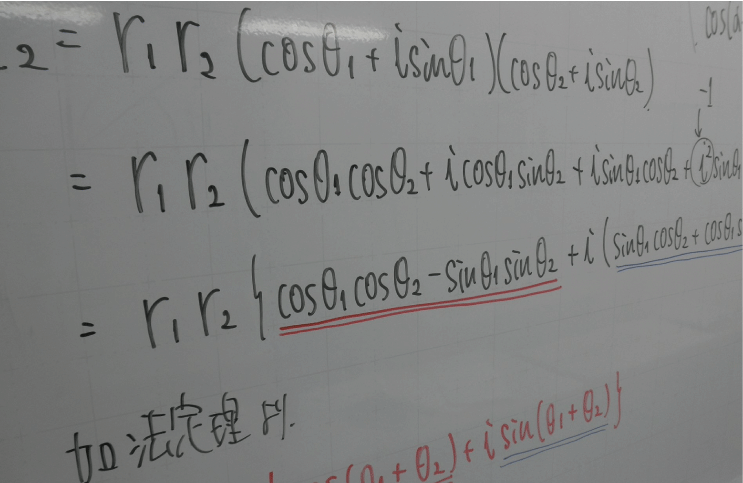 2 = r₁ r₂ (cosθ₁ + i sinθ₁)(cosθ₂ + i sinθ₂)
cos(
-1
↓
= r₁ r₂ (cosθ₁ cosθ₂ + i cosθ₁ sinθ₂ + i sinθ₁ cosθ₂ + i² sinθ₁
= r₁ r₂ { cosθ₁ cosθ₂ - sinθ₁ sinθ₂ + i (sinθ₁ cosθ₂ + cosθ₁ s
加法定理より.
(θ₁ + θ₂) + i sin(θ₁ + θ₂)}